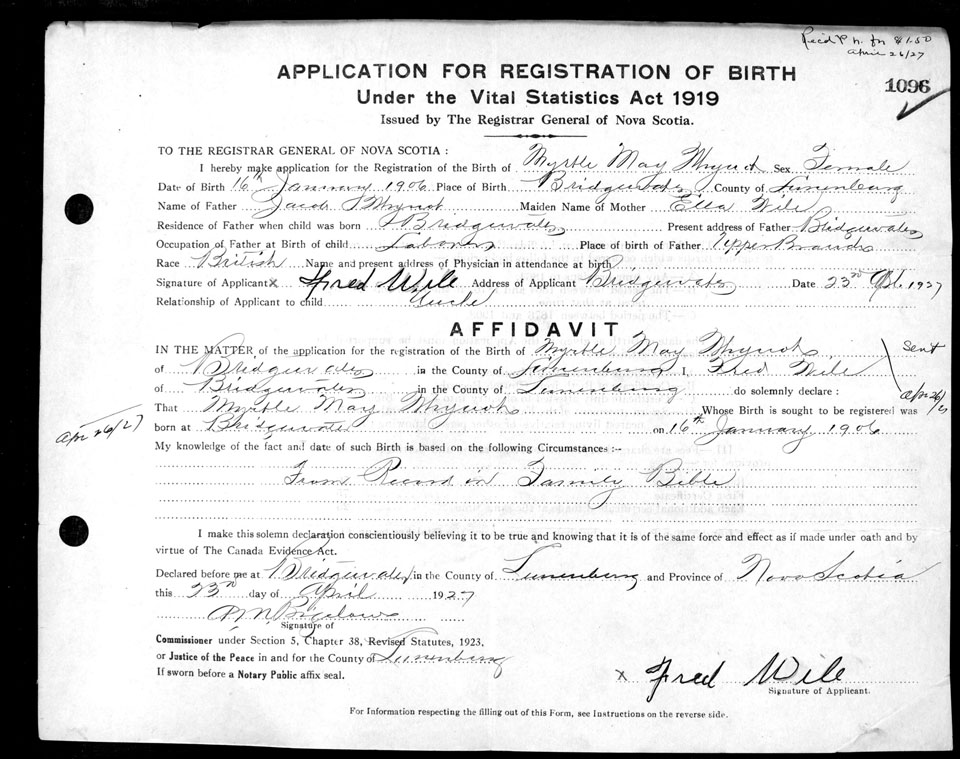 Recd P. n. for $1.50
April 26/27
APPLICATION FOR REGISTRATION OF BIRTH
1096
Under the Vital Statistics Act 1919
Issued by The Registrar General of Nova Scotia.
TO THE REGISTRAR GENERAL OF NOVA SCOTIA :
I hereby make application for the Registration of the Birth of Myrtle May Whynot Sex Female
Date of Birth 16th January 1906 Place of Birth Bridgewater County of Lunenburg
Name of Father Jacob Whynot Maiden Name of Mother Ella Wile
Residence of Father when child was born Bridgewater Present address of Father Bridgewater
Occupation of Father at Birth of child Laborer Place of birth of Father Upper Branch
Race British Name and present address of Physician in attendance at birth
Signature of Applicant x Fred Wile Address of Applicant Bridgewater Date 23rd Apl. 1927
Relationship of Applicant to child Uncle
AFFIDAVIT
IN THE MATTER of the application for the registration of the Birth of Myrtle May Whynot
of Bridgewater in the County of Lunenburg I, Fred Wile
of Bridgewater in the County of Lunenburg do solemnly declare :
That Myrtle May Whynot Whose Birth is sought to be registered was
born at Bridgewater on 16th January 1906
Sent
Apr 26/27
Apr 26/27
My knowledge of the fact and date of such Birth is based on the following Circumstances :--
From Record in Family Bible
I make this solemn declaration conscientiously believing it to be true and knowing that it is of the same force and effect as if made under oath and by
virtue of The Canada Evidence Act.
Declared before me at Bridgewater in the County of Lunenburg and Province of Nova Scotia
this 23rd day of April 1927
Signature of
Commissioner under Section 5, Chapter 38, Revised Statutes, 1923,
or Justice of the Peace in and for the County of Lunenburg
If sworn before a Notary Public affix seal.
x Fred Wile
Signature of Applicant.
For Information respecting the filling out of this Form, see Instructions on the reverse side.